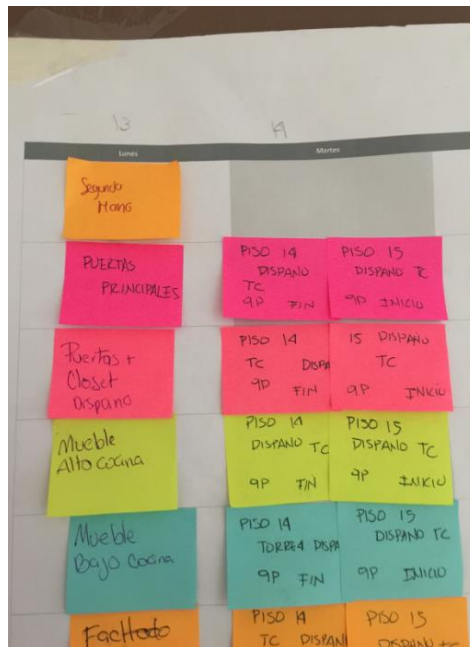 13 14
Lunes Martes
Segunda
Mano
PUERTAS
PRINCIPALES
PISO 14
DISPANO
TC
9P FIN
PISO 15
DISPANO TC
9P INICIO
Puertas +
Closet
Dispano
PISO 14
TC DISPA
9P FIN
15 DISPANO
TC
9P INICIO
Mueble
Alto Cocina
PISO 14
DISPANO TC
9P FIN
PISO 15
DISPANO TC
9P INICIO
Mueble
Bajo Cocina
PISO 14
TORRE4 DISPA
9P FIN
PISO 15
DISPANO TC
9P INICIO
PISO 14
TC DISPAN
PISO 15
DISPANO TC